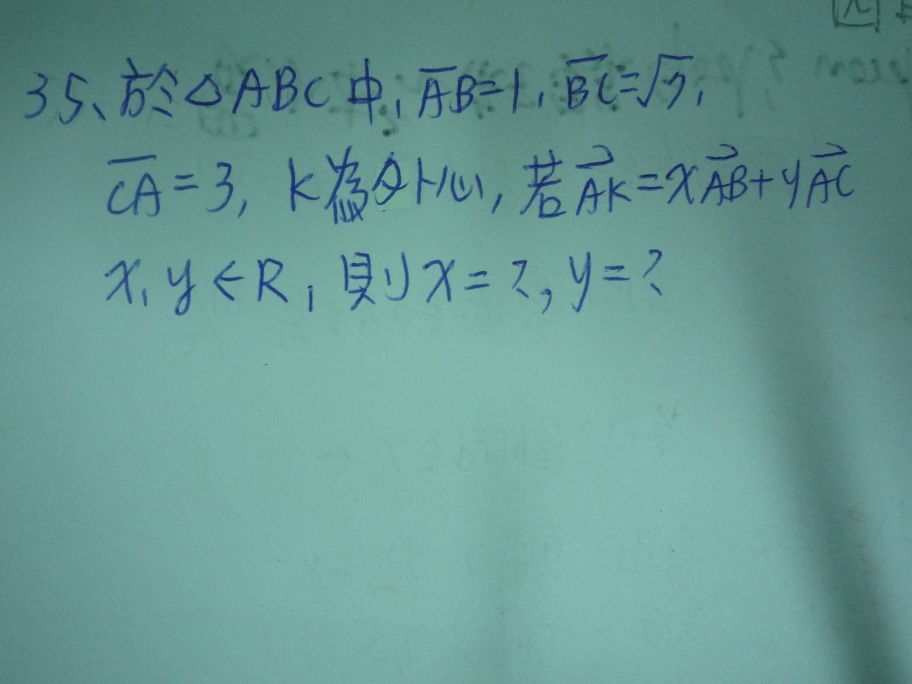 35、於△ABC中, A̅B̅=1, B̅C̅=√7,
C̅A̅=3, K為外心, 若A⃗K⃗=xA⃗B⃗+yA⃗C⃗
x,y∈R, 則x=?, y=?